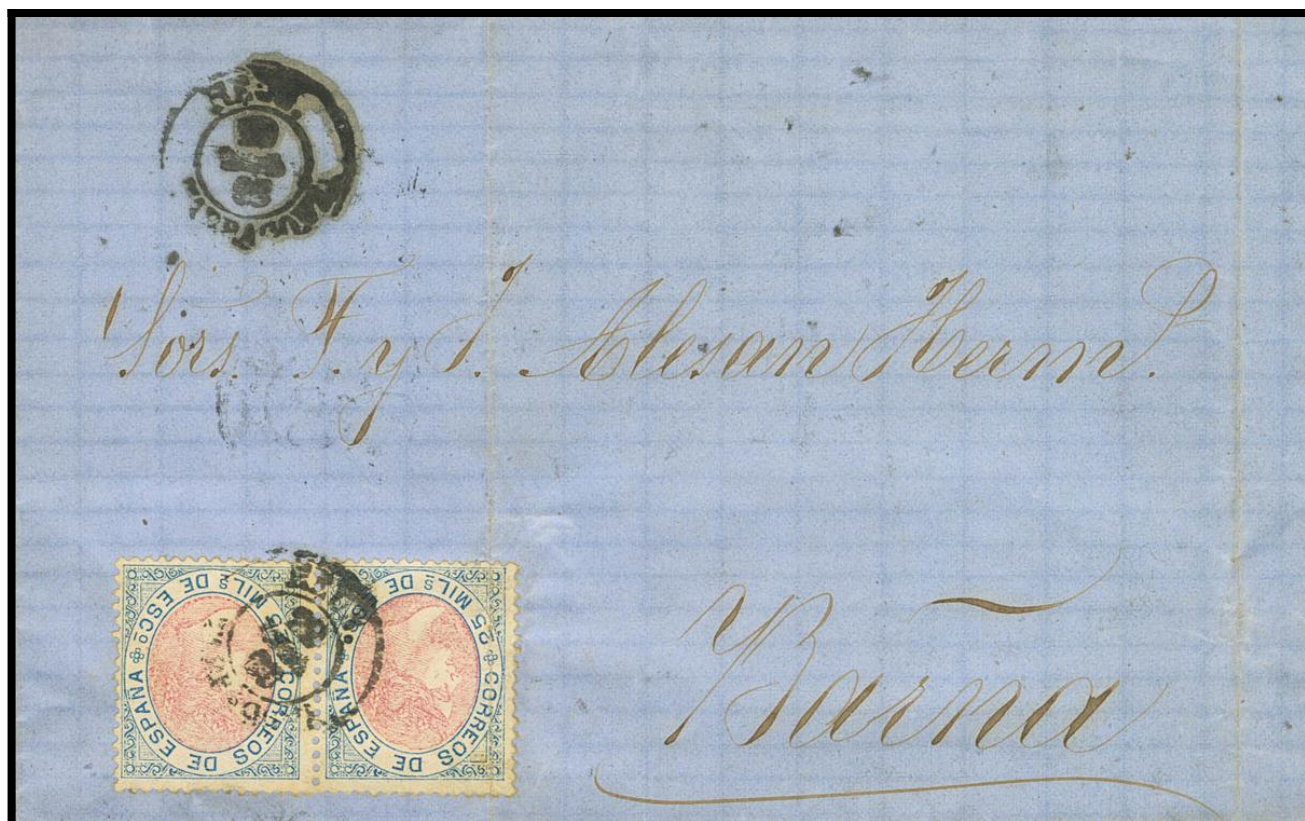 Sors. F. y J. Alesan Herms.
Barna
CORREOS DE ESPAÑA 25 MILS DE ESCO
CORREOS DE ESPAÑA 25 MILS DE